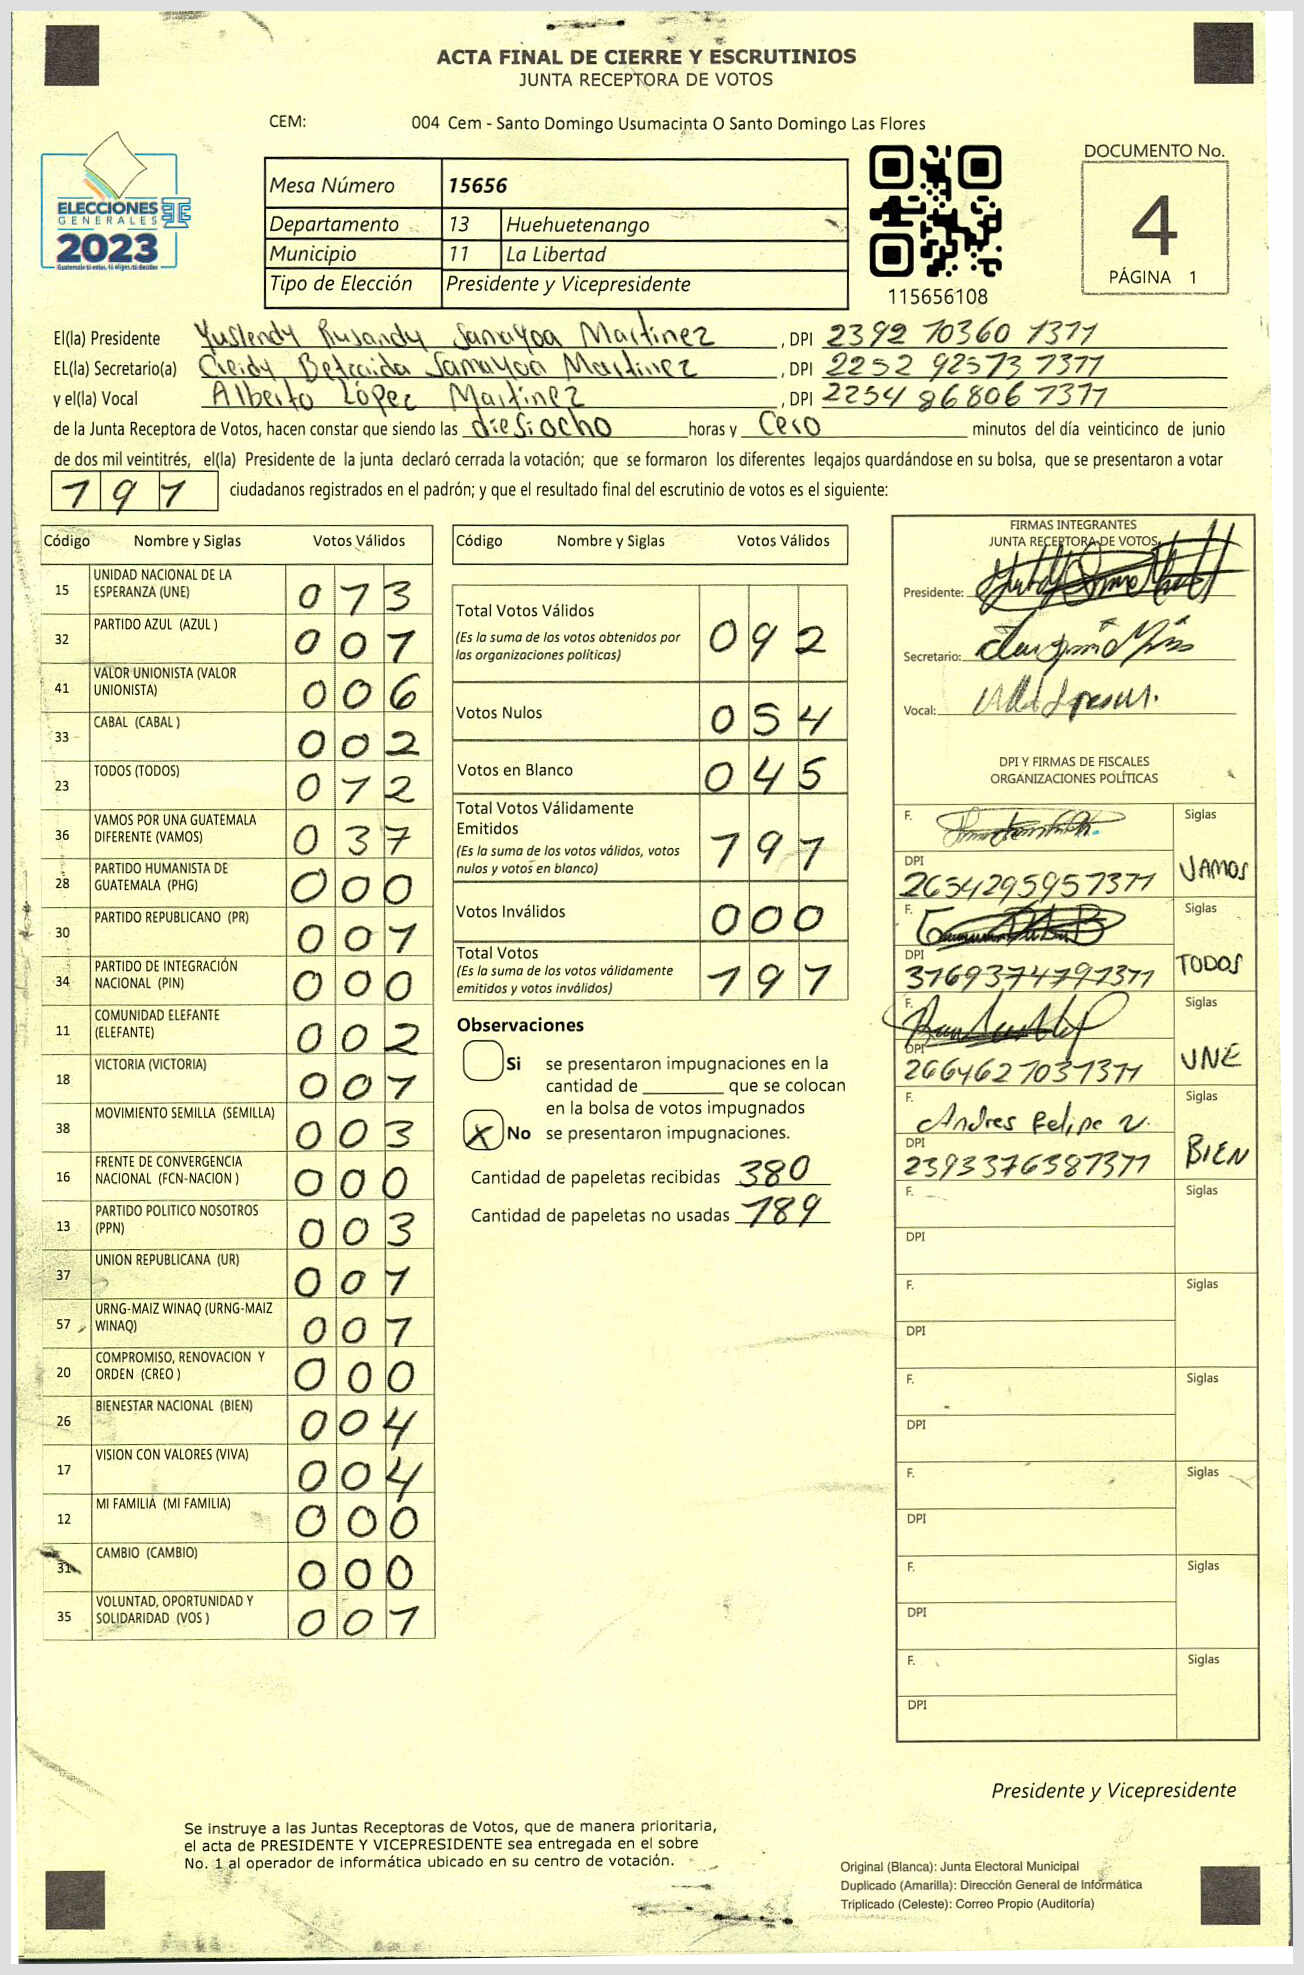 ACTA FINAL DE CIERRE Y ESCRUTINIOS
JUNTA RECEPTORA DE VOTOS
CEM: 004 Cem - Santo Domingo Usumacinta O Santo Domingo Las Flores
ELECCIONES
GENERALES
2023
Mesa Número 15656
Departamento 13 Huehuetenango
Municipio 11 La Libertad
Tipo de Elección Presidente y Vicepresidente
115656108
DOCUMENTO No.
4
PÁGINA 1
El(la) Presidente Yuslendy Rusandy Samayoa Martinez, DPI 2392 10360 1311
EL(la) Secretario(a) Samayoa Martinez, DPI 2252 92573 1311
y el(la) Vocal Alberto López Martinez, DPI 2254 86806 1311
de la Junta Receptora de Votos, hacen constar que siendo las diesiocho horas y Cero minutos del día veinticinco de junio
de dos mil veintitrés, el(la) Presidente de la junta declaró cerrada la votación; que se formaron los diferentes legajos quardándose en su bolsa, que se presentaron a votar
191 ciudadanos registrados en el padrón; y que el resultado final del escrutinio de votos es el siguiente:
Código Nombre y Siglas Votos Válidos
15 UNIDAD NACIONAL DE LA ESPERANZA (UNE) 013
32 PARTIDO AZUL (AZUL ) 001
41 VALOR UNIONISTA (VALOR UNIONISTA) 006
33 CABAL (CABAL ) 002
23 TODOS (TODOS) 012
36 VAMOS POR UNA GUATEMALA DIFERENTE (VAMOS) 037
28 PARTIDO HUMANISTA DE GUATEMALA (PHG) 000
30 PARTIDO REPUBLICANO (PR) 001
34 PARTIDO DE INTEGRACIÓN NACIONAL (PIN) 000
11 COMUNIDAD ELEFANTE (ELEFANTE) 002
18 VICTORIA (VICTORIA) 001
38 MOVIMIENTO SEMILLA (SEMILLA) 003
16 FRENTE DE CONVERGENCIA NACIONAL (FCN-NACION ) 000
13 PARTIDO POLITICO NOSOTROS (PPN) 003
37 UNION REPUBLICANA (UR) 001
57 URNG-MAIZ WINAQ (URNG-MAIZ WINAQ) 001
20 COMPROMISO, RENOVACION Y ORDEN (CREO ) 000
26 BIENESTAR NACIONAL (BIEN) 004
17 VISION CON VALORES (VIVA) 004
12 MI FAMILIA (MI FAMILIA) 000
31 CAMBIO (CAMBIO) 000
35 VOLUNTAD, OPORTUNIDAD Y SOLIDARIDAD (VOS ) 001
Código Nombre y Siglas Votos Válidos
Total Votos Válidos 092
(Es la suma de los votos obtenidos por
las organizaciones políticas)
Votos Nulos 054
Votos en Blanco 045
Total Votos Válidamente
Emitidos 191
(Es la suma de los votos válidos, votos
nulos y votos en blanco)
Votos Inválidos 000
Total Votos 191
(Es la suma de los votos válidamente
emitidos y votos inválidos)
Observaciones
Si se presentaron impugnaciones en la
cantidad de ________ que se colocan
en la bolsa de votos impugnados
X No se presentaron impugnaciones.
Cantidad de papeletas recibidas 380
Cantidad de papeletas no usadas 189
FIRMAS INTEGRANTES
JUNTA RECEPTORA DE VOTOS
Presidente:
Secretario:
Vocal:
DPI Y FIRMAS DE FISCALES
ORGANIZACIONES POLÍTICAS
F. Siglas
DPI VAMOS
2654295951311
F. Siglas
DPI TODOS
3169374791311
F. Siglas
DPI UNE
2664621031311
F. Andres Felipe V. Siglas
DPI BIEN
2393376381311
F. Siglas
DPI
F. Siglas
DPI
F. Siglas
DPI
F. Siglas
DPI
F. Siglas
DPI
F. Siglas
DPI
Presidente y Vicepresidente
Se instruye a las Juntas Receptoras de Votos, que de manera prioritaria,
el acta de PRESIDENTE Y VICEPRESIDENTE sea entregada en el sobre
No. 1 al operador de informática ubicado en su centro de votación.
Original (Blanca): Junta Electoral Municipal
Duplicado (Amarilla): Dirección General de Informática
Triplicado (Celeste): Correo Propio (Auditoría)